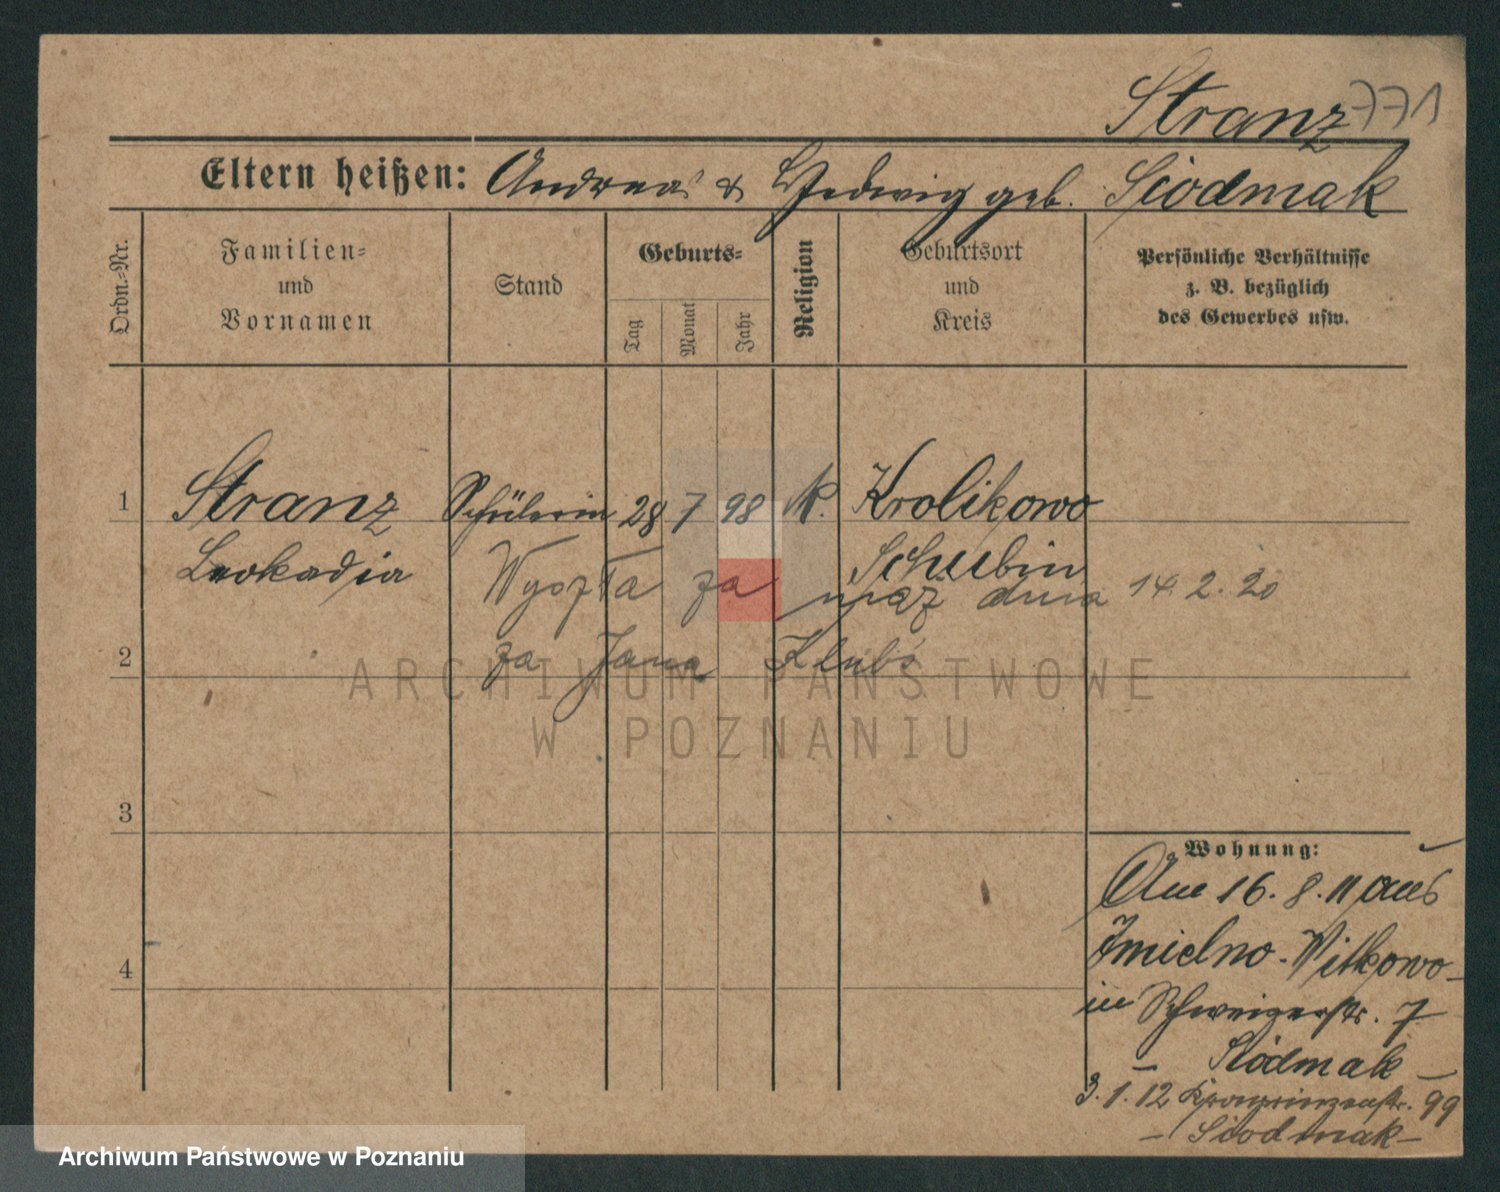 Stranz 771
Eltern heißen: Andreas & Hedwig geb. Siodmak
Ordn.-Nr.
Familien- und Vornamen
Stand
Geburts-
Tag
Monat
Jahr
Religion
Geburtsort und Kreis
Persönliche Verhältnisse
z. B. bezüglich
des Gewerbes usw.
1 Stranz Schülerin 28 7 98 k. Krolikowo
Leokadja Schubin
Wyszła za mąż dnia 14.2.20
2 za Jana
3
4
Wohnung:
Am 16.8.11 aus
Imielno-Witkowo
in 7
– Siodmak –
3.1.12 Kronprinzenstr. 99
– Siodmak –
ARCHIWUM PAŃSTWOWE
W POZNANIU
Archiwum Państwowe w Poznaniu